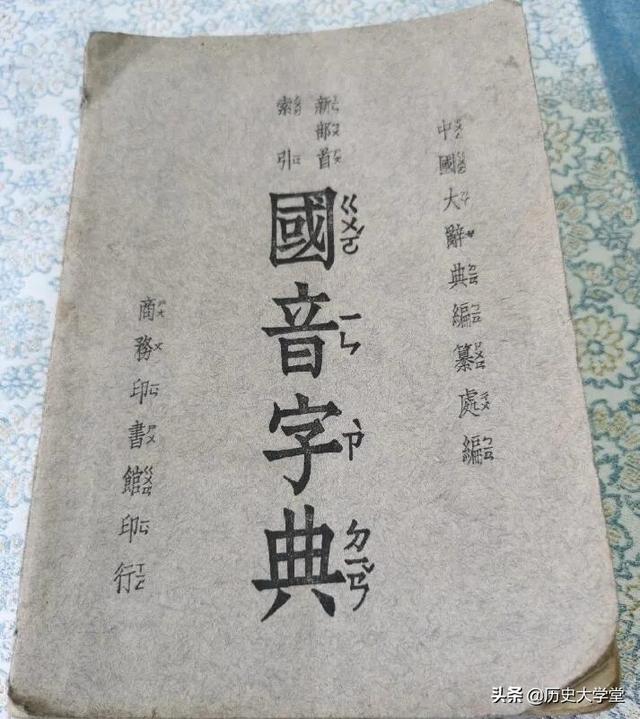 中國大辭典編纂處編
新部首
索引
國音字典
ㄍㄨㄛˊ ㄧㄣ ㄗˋ ㄉㄧㄢˇ
商務印書館印行
头条 @历史大学堂